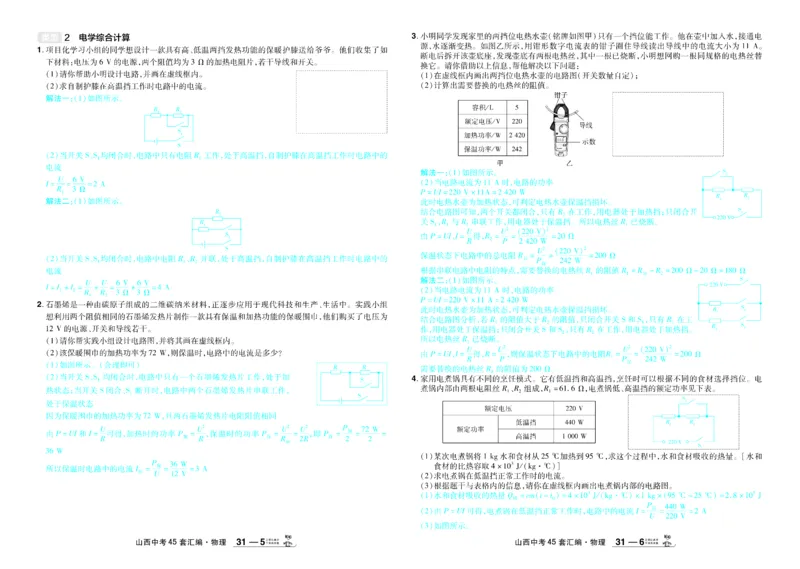 类型 2 电学综合计算
1. 项目化学习小组的同学想设计一款具有高、低温两挡发热功能的保暖护膝送给爷爷。他们收集了如
下材料：电压为 6 V 的电源，两个阻值均为 3 Ω 的加热电阻片，若干导线和开关。
(1)请你帮助小明设计电路，并画在虚线框内。
(2)求自制护膝在高温挡工作时电路中的电流。
解法一：(1)如图所示。
(2)当开关 S、S₁均闭合时，电路中只有电阻 R₁ 工作，处于高温挡，自制护膝在高温挡工作时电路中的
电流
I=U/R₁=6 V/3 Ω=2 A
解法二：(1)如图所示。
(2)当开关 S、S₁均闭合时，电路中电阻 R₁、R₂并联，处于高温挡，自制护膝在高温挡工作时电路中的
电流
I=I₁+I₂=U/R₁+U/R₂=6 V/3 Ω+6 V/3 Ω=4 A
2. 石墨烯是一种由碳原子组成的二维碳纳米材料，正逐步应用于现代科技和生产、生活中。实践小组
想利用两个阻值相同的石墨烯发热片制作一款具有保温和加热功能的保暖围巾，他们购买了电压为
12 V 的电源、开关和导线若干。
(1)请你帮实践小组设计电路图，并将其画在虚线框内。
(2)该保暖围巾的加热功率为 72 W，则保温时，电路中的电流是多少？
(1)如图所示。(合理即可)
(2)当开关 S、S₁ 均闭合时，电路中只有一个石墨烯发热片工作，处于加
热状态，当开关 S 闭合、S₁ 断开时，电路中两个石墨烯发热片串联工作，
处于保温状态
因为保暖围巾的加热功率为 72 W，且两石墨烯发热片电阻阻值相同
由 P=UI 和 I=U/R可得，加热时的功率 P加=U²/R，保温时的功率 P保=U²/R串=U²/2R，即 P保=P加/2=72 W/2=
36 W
所以保温时电路中的电流 I保=P保/U=36 W/12 V=3 A
山西中考 45 套汇编·物理 31 — 5
3. 小明同学发现家里的两挡位电热水壶(铭牌如图甲)只有一个挡位能工作。他在壶中加入水，接通电
源，水逐渐变热。如图乙所示，用钳形数字电流表的钳子圈住导线读出导线中的电流大小为 11 A。
断电后拆开该壶底座，发现壶底有两根电热丝，其中一根已烧断，小明想网购一根同规格的电热丝替
换它。请你借助以上信息，帮他解决以下问题：
(1)在虚线框内画出两挡位电热水壶的电路图(开关数量自定)；
(2)计算出需要替换的电热丝的阻值。
容积/L 5
额定电压/V 220
加热功率/W 2 420
保温功率/W 242
甲
钳子
导线
示数
乙
解法一：(1)如图所示。
(2)当电路电流为 11 A 时，电路的功率
P=UI=220 V×11A=2 420 W
此时电热水壶为加热状态，可判定电热水壶保温挡损坏
结合电路图可知，两个开关都闭合，只有 R₁ 在工作，用电器处于加热挡；只闭合开
关 S₁，R₁ 与 R₂ 串联工作，用电器处于保温挡。所以电热丝 R₂ 已烧断。
由 P=UI、I=U/R得，R₁=U²/P=(220 V)²/2 420 W=20 Ω
保温状态下电路中的总电阻 R总=U²/P保=(220 V)²/242 W=200 Ω
根据串联电路中电阻的特点，需要替换的电热丝 R₂ 的阻值 R₂=R总-R₁=200 Ω-20 Ω=180 Ω
解法二：(1)如图所示。
(2)当电路电流为 11 A 时，电路的功率
P=UI=220 V×11 A=2 420 W
此时电热水壶为加热状态，可判定电热水壶保温挡损坏
所以电热丝 R₂ 已烧断。
需要替换的电热丝 R₂ 的阻值为 200 Ω
4. 家用电煮锅具有不同的烹饪模式。它有低温挡和高温挡，烹饪时可以根据不同的食材选择挡位。电
煮锅内部由两根电阻丝 R₁、R₂ 组成，R₁=61.6 Ω，电煮锅低、高温挡的额定功率见下表。
额定电压 220 V
额定功率 低温挡 440 W
高温挡 1 000 W
(1)某次电煮锅将 1 kg 水和食材从 25 ℃加热到 95 ℃，求这个过程中，水和食材吸收的热量。[水和
食材的比热容取 4×10³ J/(kg·℃)]
(2)求电煮锅在低温挡正常工作时的电流。
(3)根据题干与表格内的信息，请你在虚线框内画出电煮锅内部的电路图。
(1)水和食材吸收的热量 Q吸=cm(t-t₀)=4×10³ J/(kg·℃)×1 kg×(95 ℃-25 ℃)=2.8×10⁵ J
(2)由 P=UI 可得，电煮锅在低温挡正常工作时，电路中的电流 I=P低/U=440 W/220 V=2 A
(3)如图所示。
山西中考 45 套汇编·物理 31 — 6